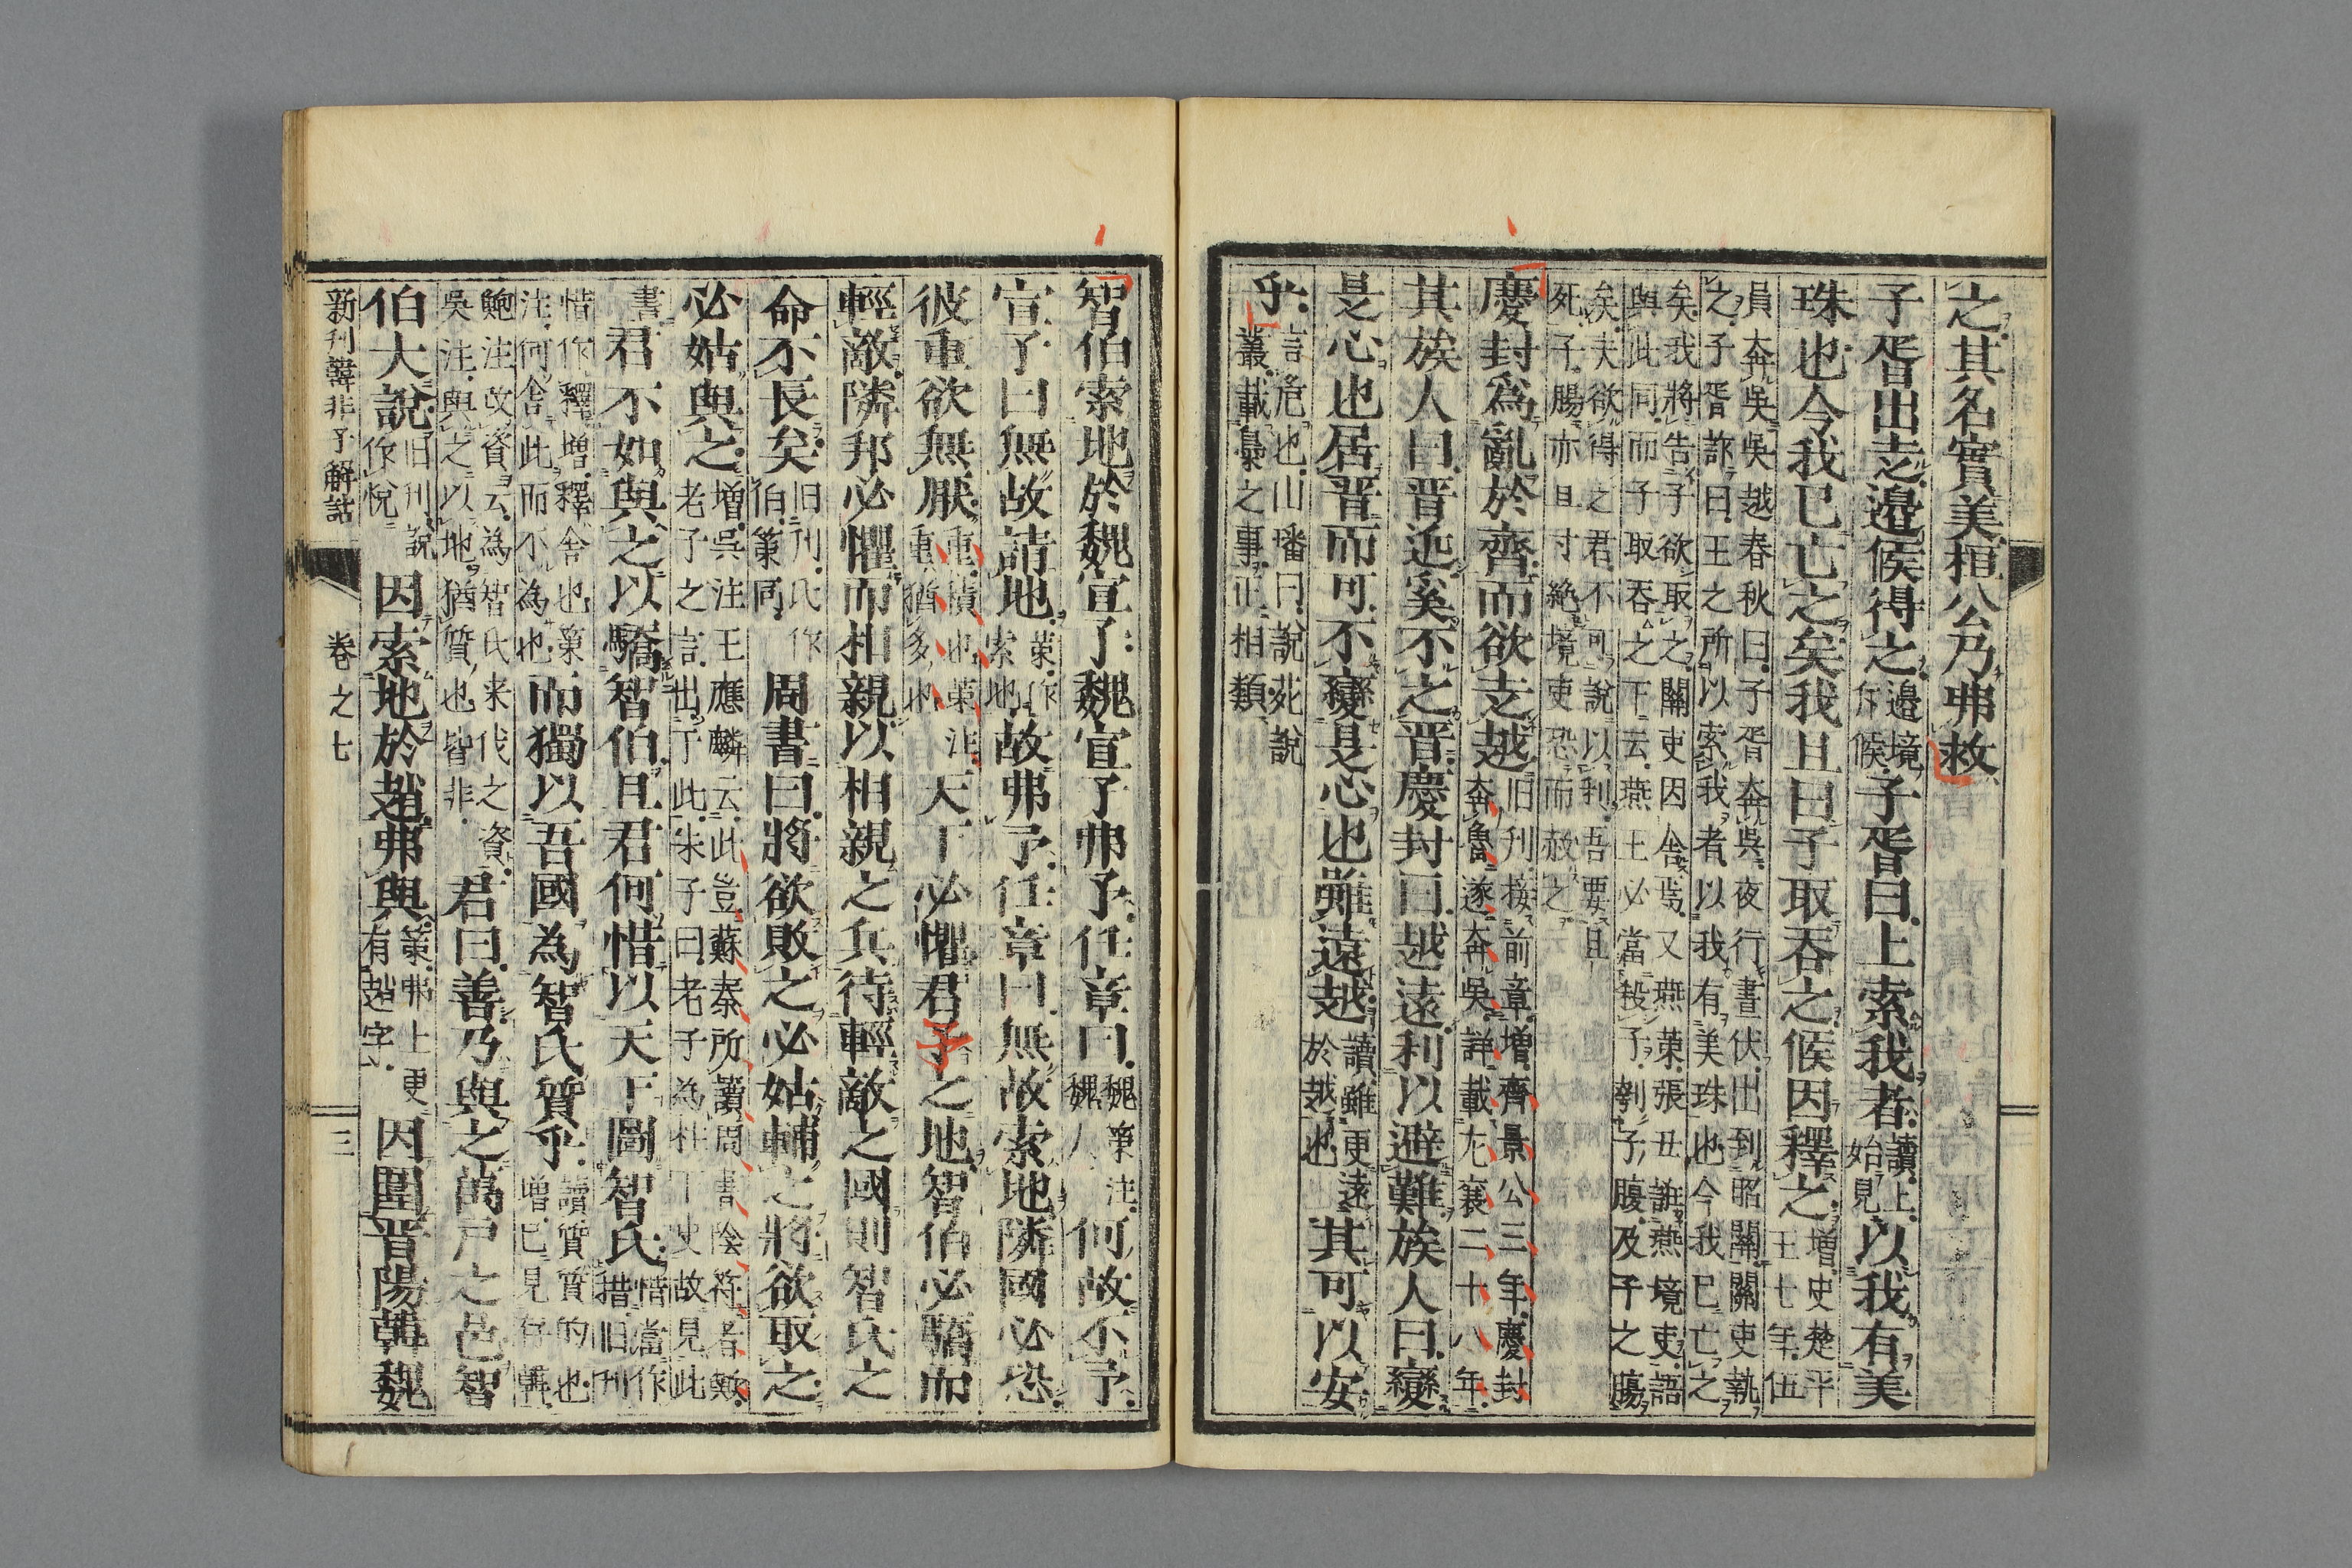 之其名實美桓公乃弗救
子胥出走邊候得之邊境斥候子胥曰上索我者讀上始見以我有美
珠也今我已亡之矣我且曰子取吞之候因釋之增史楚平王七年伍
員奔吳吳越春秋曰子胥奔吳夜行晝伏出到昭關關吏執
之子胥詐曰王之所以索我者以我有美珠也今我已亡之
矣我將告子欲取之關吏因舍焉又燕策張丑誑燕境吏語
與此同而子取吞之下云燕王必當殺子刳子腹及子之腸
矣夫欲得之君不可說以利吾要且
死子腸亦且寸絶境吏恐而赦之
慶封爲亂於齊而欲走越旧刊接前章增齊景公三年慶封奔魯遂奔吳詳載左襄二十八年
其族人曰晋近奚不之晋慶封曰越遠利以避難族人曰變
是心也居晋而可不變是心也雖遠越讀雖更遠於越也其可以安
乎言危也山璠曰說苑說叢載梟之事正相類
智伯索地於魏宣子魏宣子弗予任章曰魏策注魏人何故不予
宣子曰無故請地策作索地故弗予任章曰無故索地隣國必恐
彼重欲無厭重積也策注重猶多也天下必懼君予之地智伯必驕而
輕敵隣邦必懼而相親以相親之兵待輕敵之國則智氏之
命不長矣旧刊氏作伯策同周書曰將欲敗之必姑輔之將欲取之
必姑與之增吳注王應麟云此豈蘇秦所讀周書陰符者歟老子之言出于此朱子曰老子為柱下史故見此
書君不如與之以驕智伯且君何惜以天下圖智氏惜當作措旧刊
惜作釋增釋舍也策注何舍此而不為也而獨以吾國為智氏質乎讀質質的也增已見存韓
鮑注改資云為智氏来伐之資吳注與之以地猶質也皆非君曰善乃與之萬戶之邑智
伯大說旧刊說作悅因索地於趙弗與策弗上更有趙字因圍晋陽韓魏
新刊韓非子解詁 卷之七 三